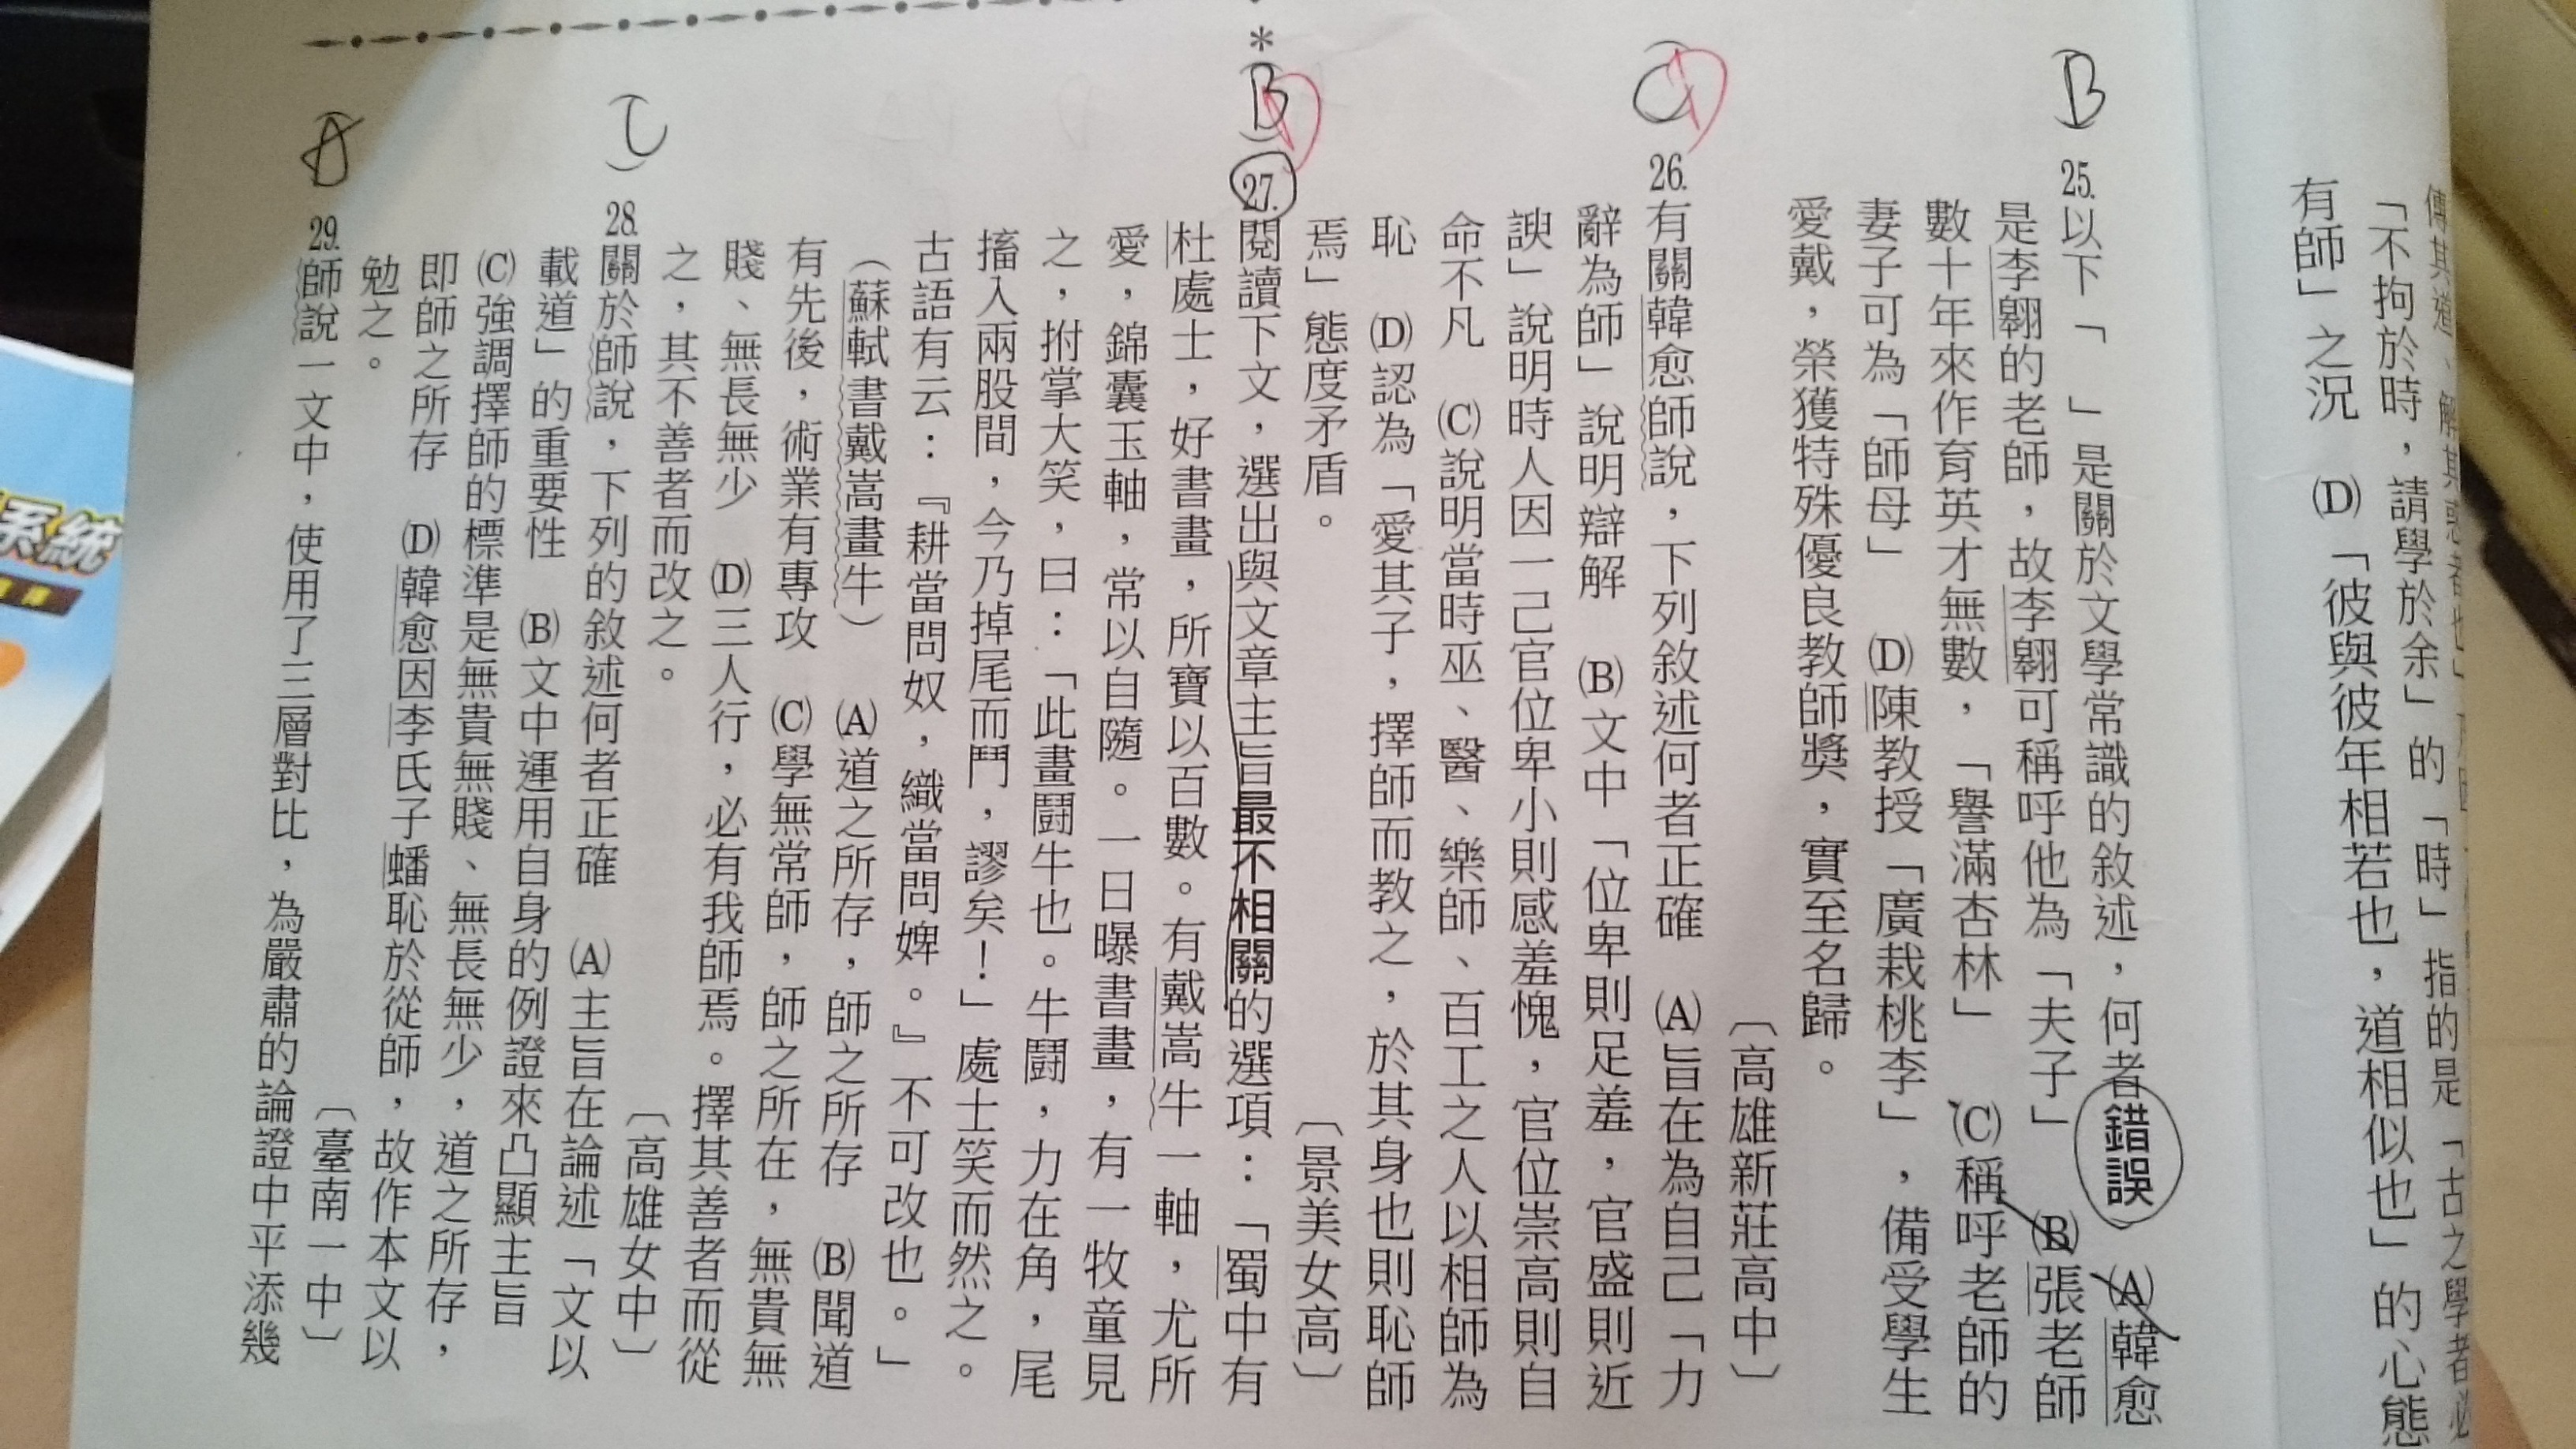 「不拘於時，請學於余」的「時」指的是「古之學者必
有師」之況　(D)「彼與彼年相若也，道相似也」的心態
B 25.以下「　」是關於文學常識的敘述，何者錯誤　(A)韓愈
是李翱的老師，故李翱可稱呼他為「夫子」　(B)張老師
數十年來作育英才無數，「譽滿杏林」　(C)稱呼老師的
妻子可為「師母」　(D)陳教授「廣栽桃李」，備受學生
愛戴，榮獲特殊優良教師獎，實至名歸。
〔高雄新莊高中〕
26.有關韓愈師說，下列敘述何者正確　(A)旨在為自己「力
辭為師」說明辯解　(B)文中「位卑則足羞，官盛則近
諛」說明時人因一己官位卑小則感羞愧，官位崇高則自
命不凡　(C)說明當時巫、醫、樂師、百工之人以相師為
恥　(D)認為「愛其子，擇師而教之，於其身也則恥師
焉」態度矛盾。
〔景美女高〕
*B 27.閱讀下文，選出與文章主旨最不相關的選項：「蜀中有
杜處士，好書畫，所寶以百數。有戴嵩牛一軸，尤所
愛，錦囊玉軸，常以自隨。一日曝書畫，有一牧童見
之，拊掌大笑，曰：「此畫鬪牛也。牛鬪，力在角，尾
搐入兩股間，今乃掉尾而鬥，謬矣！」處士笑而然之。
古語有云：『耕當問奴，織當問婢。』不可改也。」
（蘇軾書戴嵩畫牛）　(A)道之所存，師之所存　(B)聞道
有先後，術業有專攻　(C)學無常師，師之所在，無貴無
賤、無長無少　(D)三人行，必有我師焉。擇其善者而從
之，其不善者而改之。
〔高雄女中〕
C 28.關於師說，下列的敘述何者正確　(A)主旨在論述「文以
載道」的重要性　(B)文中運用自身的例證來凸顯主旨
(C)強調擇師的標準是無貴無賤、無長無少，道之所存，
即師之所存　(D)韓愈因李氏子蟠恥於從師，故作本文以
勉之。
〔臺南一中〕
A 29.師說一文中，使用了三層對比，為嚴肅的論證中平添幾
系統